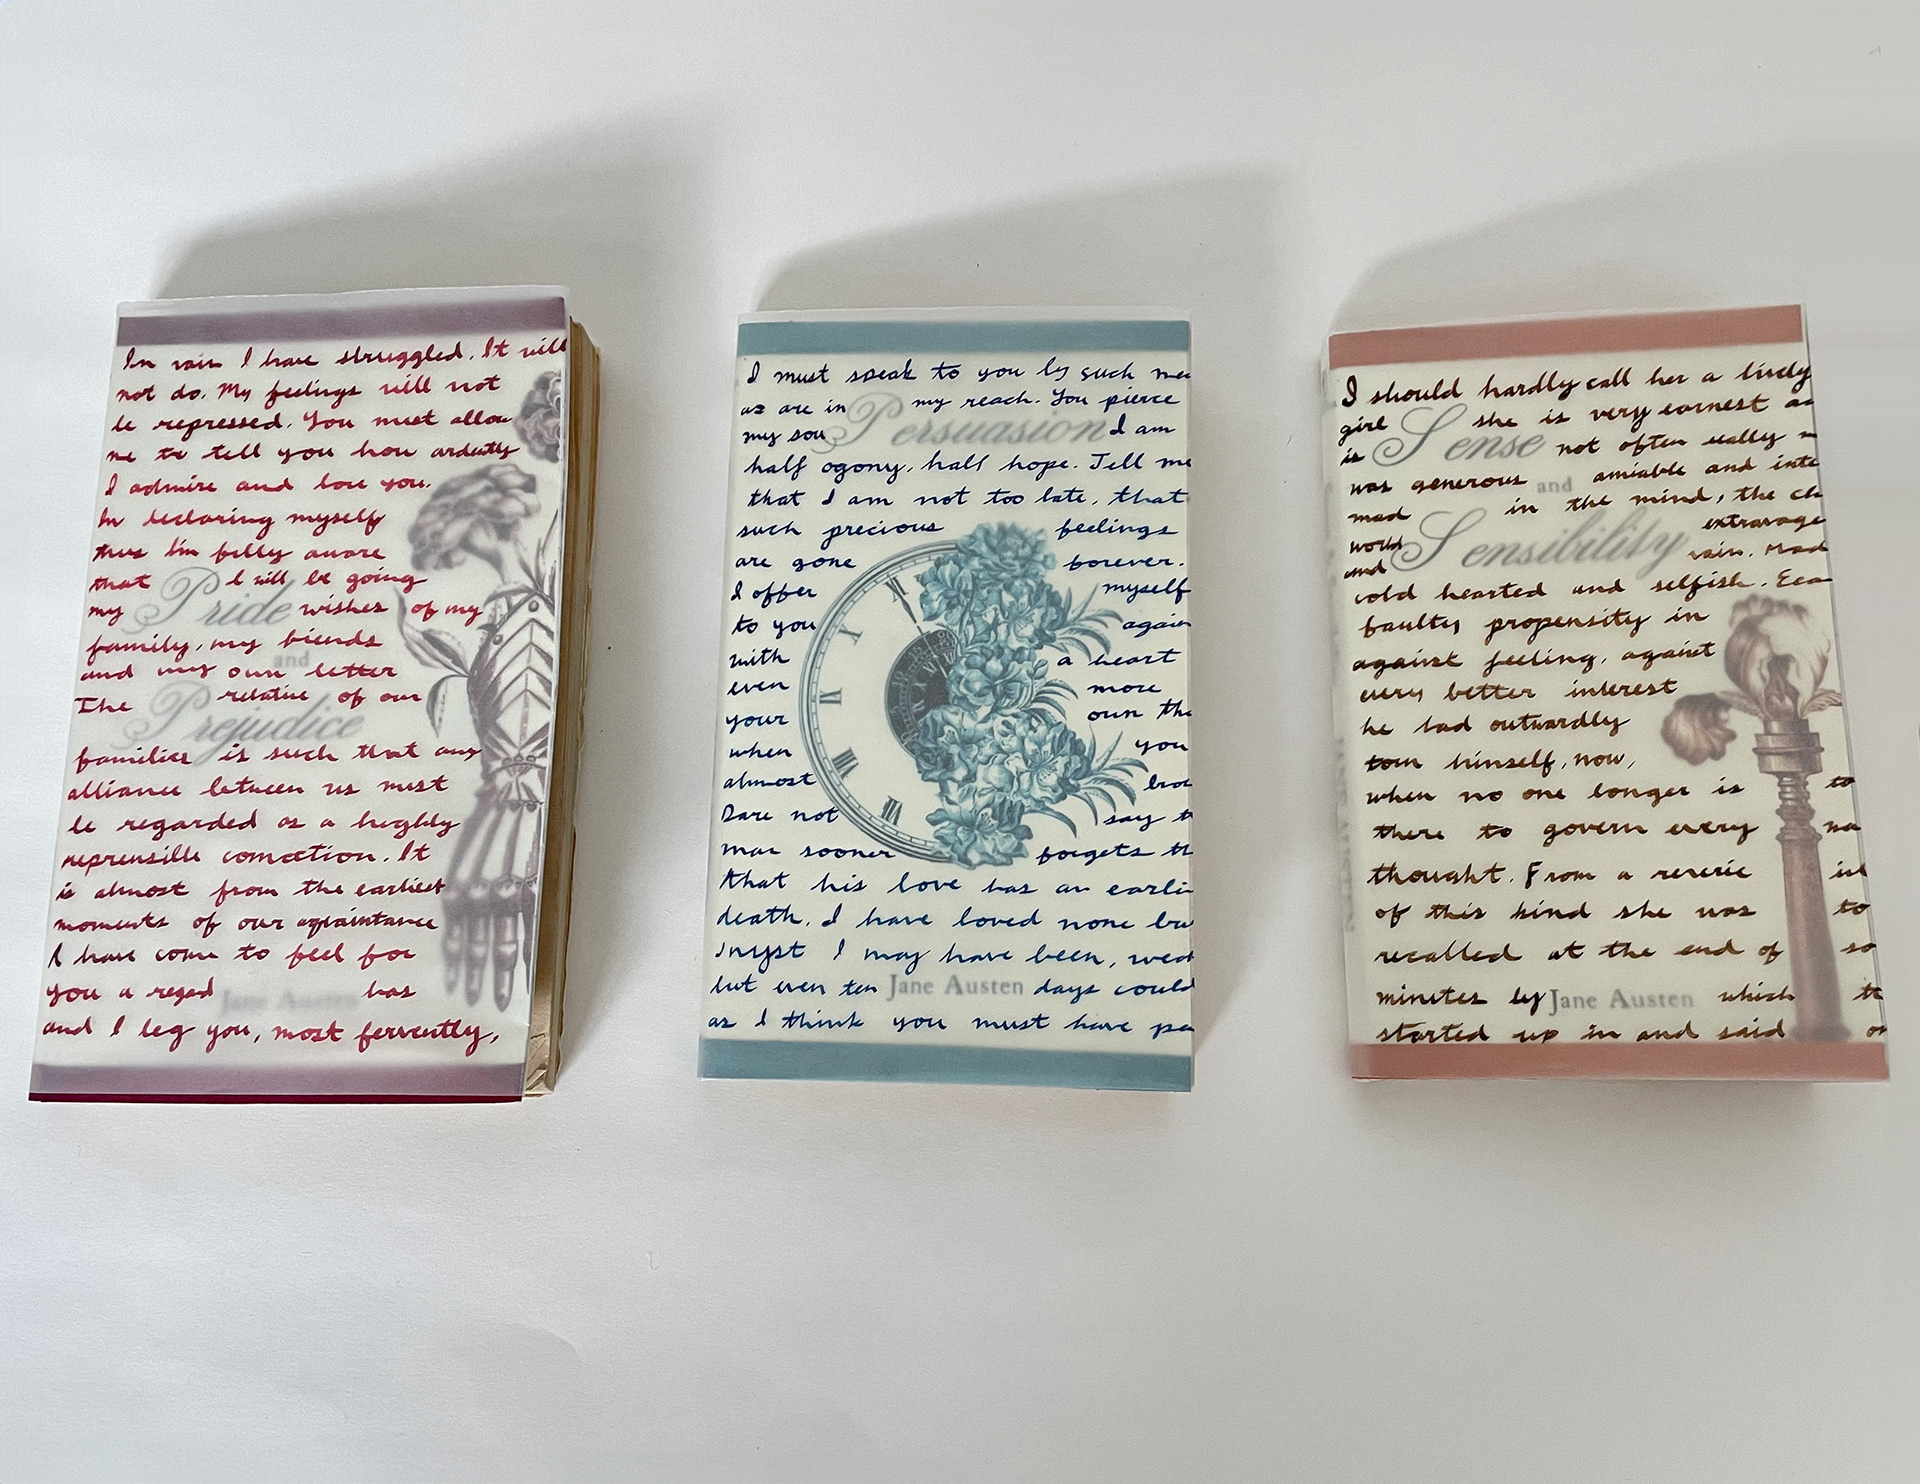 In vain I have struggled. It will
not do. My feelings will not
be repressed. You must allow
me to tell you how ardently
I admire and love you.
In declaring myself
thus I'm fully aware
that I will be going
my Pride wishes of my
family, my friends
and
and my own letter
The Prejudice relative of our
families is such that any
alliance between us must
be regarded as a highly
reprensible connection. It
is almost from the earliest
moments of our aqaintance
I have come to feel for
you a regad Jane Austen has
and I beg you, most fervently,
I must speak to you by such me
as are in my reach. You pierce
my sou Persuasion I am
half agony, half hope. Tell me
that I am not too late, that
such precious feelings
are gone forever.
I offer myself
to you again
with a heart
even more
your own the
when you
almost bro
Dare not say t
man sooner forgets th
that his love has an earli
death. I have loved none bu
I may have been, wea
but even ten Jane Austen days could
as I think you must have pe
I should hardly call her a lively
girl she is very earnest
is Sense not often really m
was generous and amiable and inte
mad in the mind, the ch
would Sensibility extravage
and vain. Mad
cold hearted and selfish.
faulty propensity in
against feeling, against
every better interest
he had outwardly
torn himself, now,
when no one longer is to
there to govern every na
thought. From a reverie in
of this kind she was to
recalled at the end of so
minutes by Jane Austen which
started up in and said